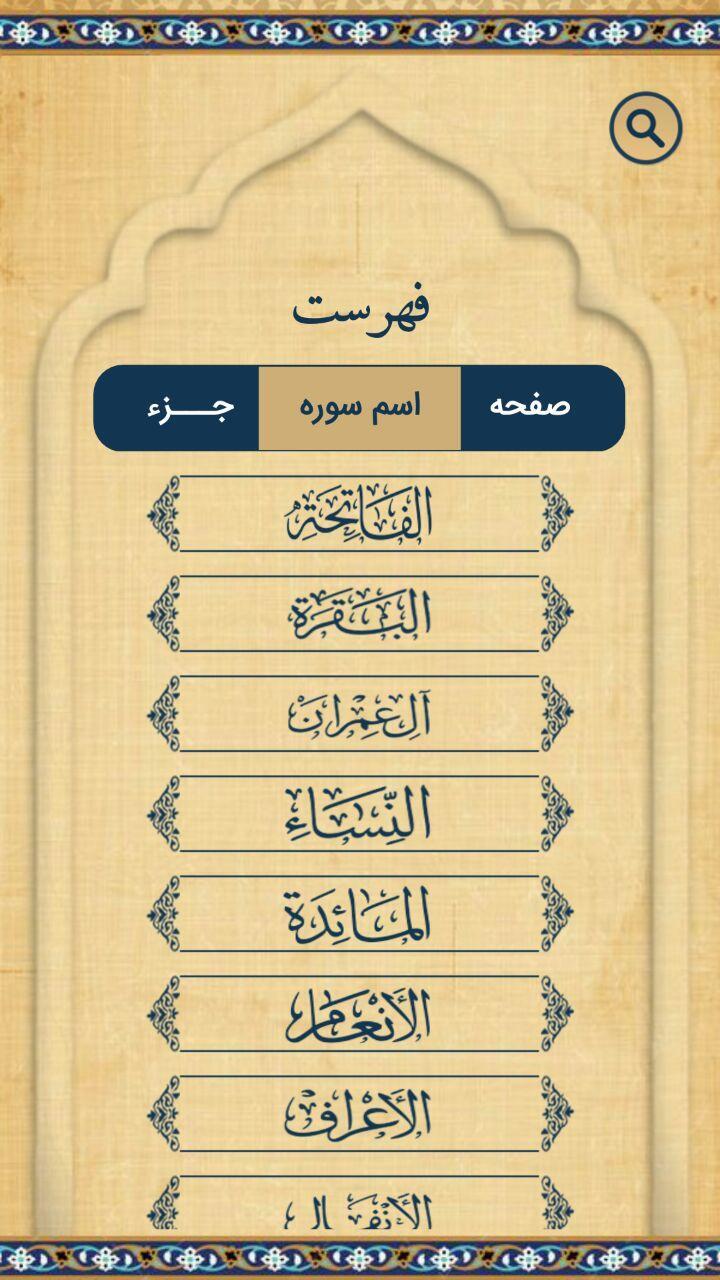 فهرست
صفحه اسم سوره جـــزء
الفَاتِحَة
البَقَرَة
آلِ عِمْرَان
النِّسَاءِ
المَائِدَة
الأَنْعَام
الأَعْرَاف
الأَنْفَال